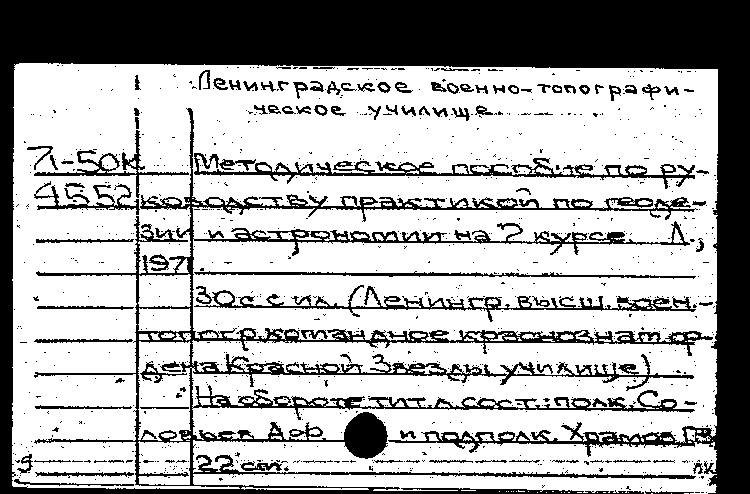 Ленинградское военно-топографи-
ческое училище.
Л-50к Методическое пособие по ру-
4552 ководству практикой по геоде-
зии и астрономии на 2 курсе. Л.,
1971.
30с. с ил. (Ленингр. высш. воен.-
топогр. командное краснознам. ор-
дена Красной Звезды училище).
На обороте тит. л. сост.: полк. Со-
ловьев А.Ф. и подполк. Храмов Г.В.
22 см.